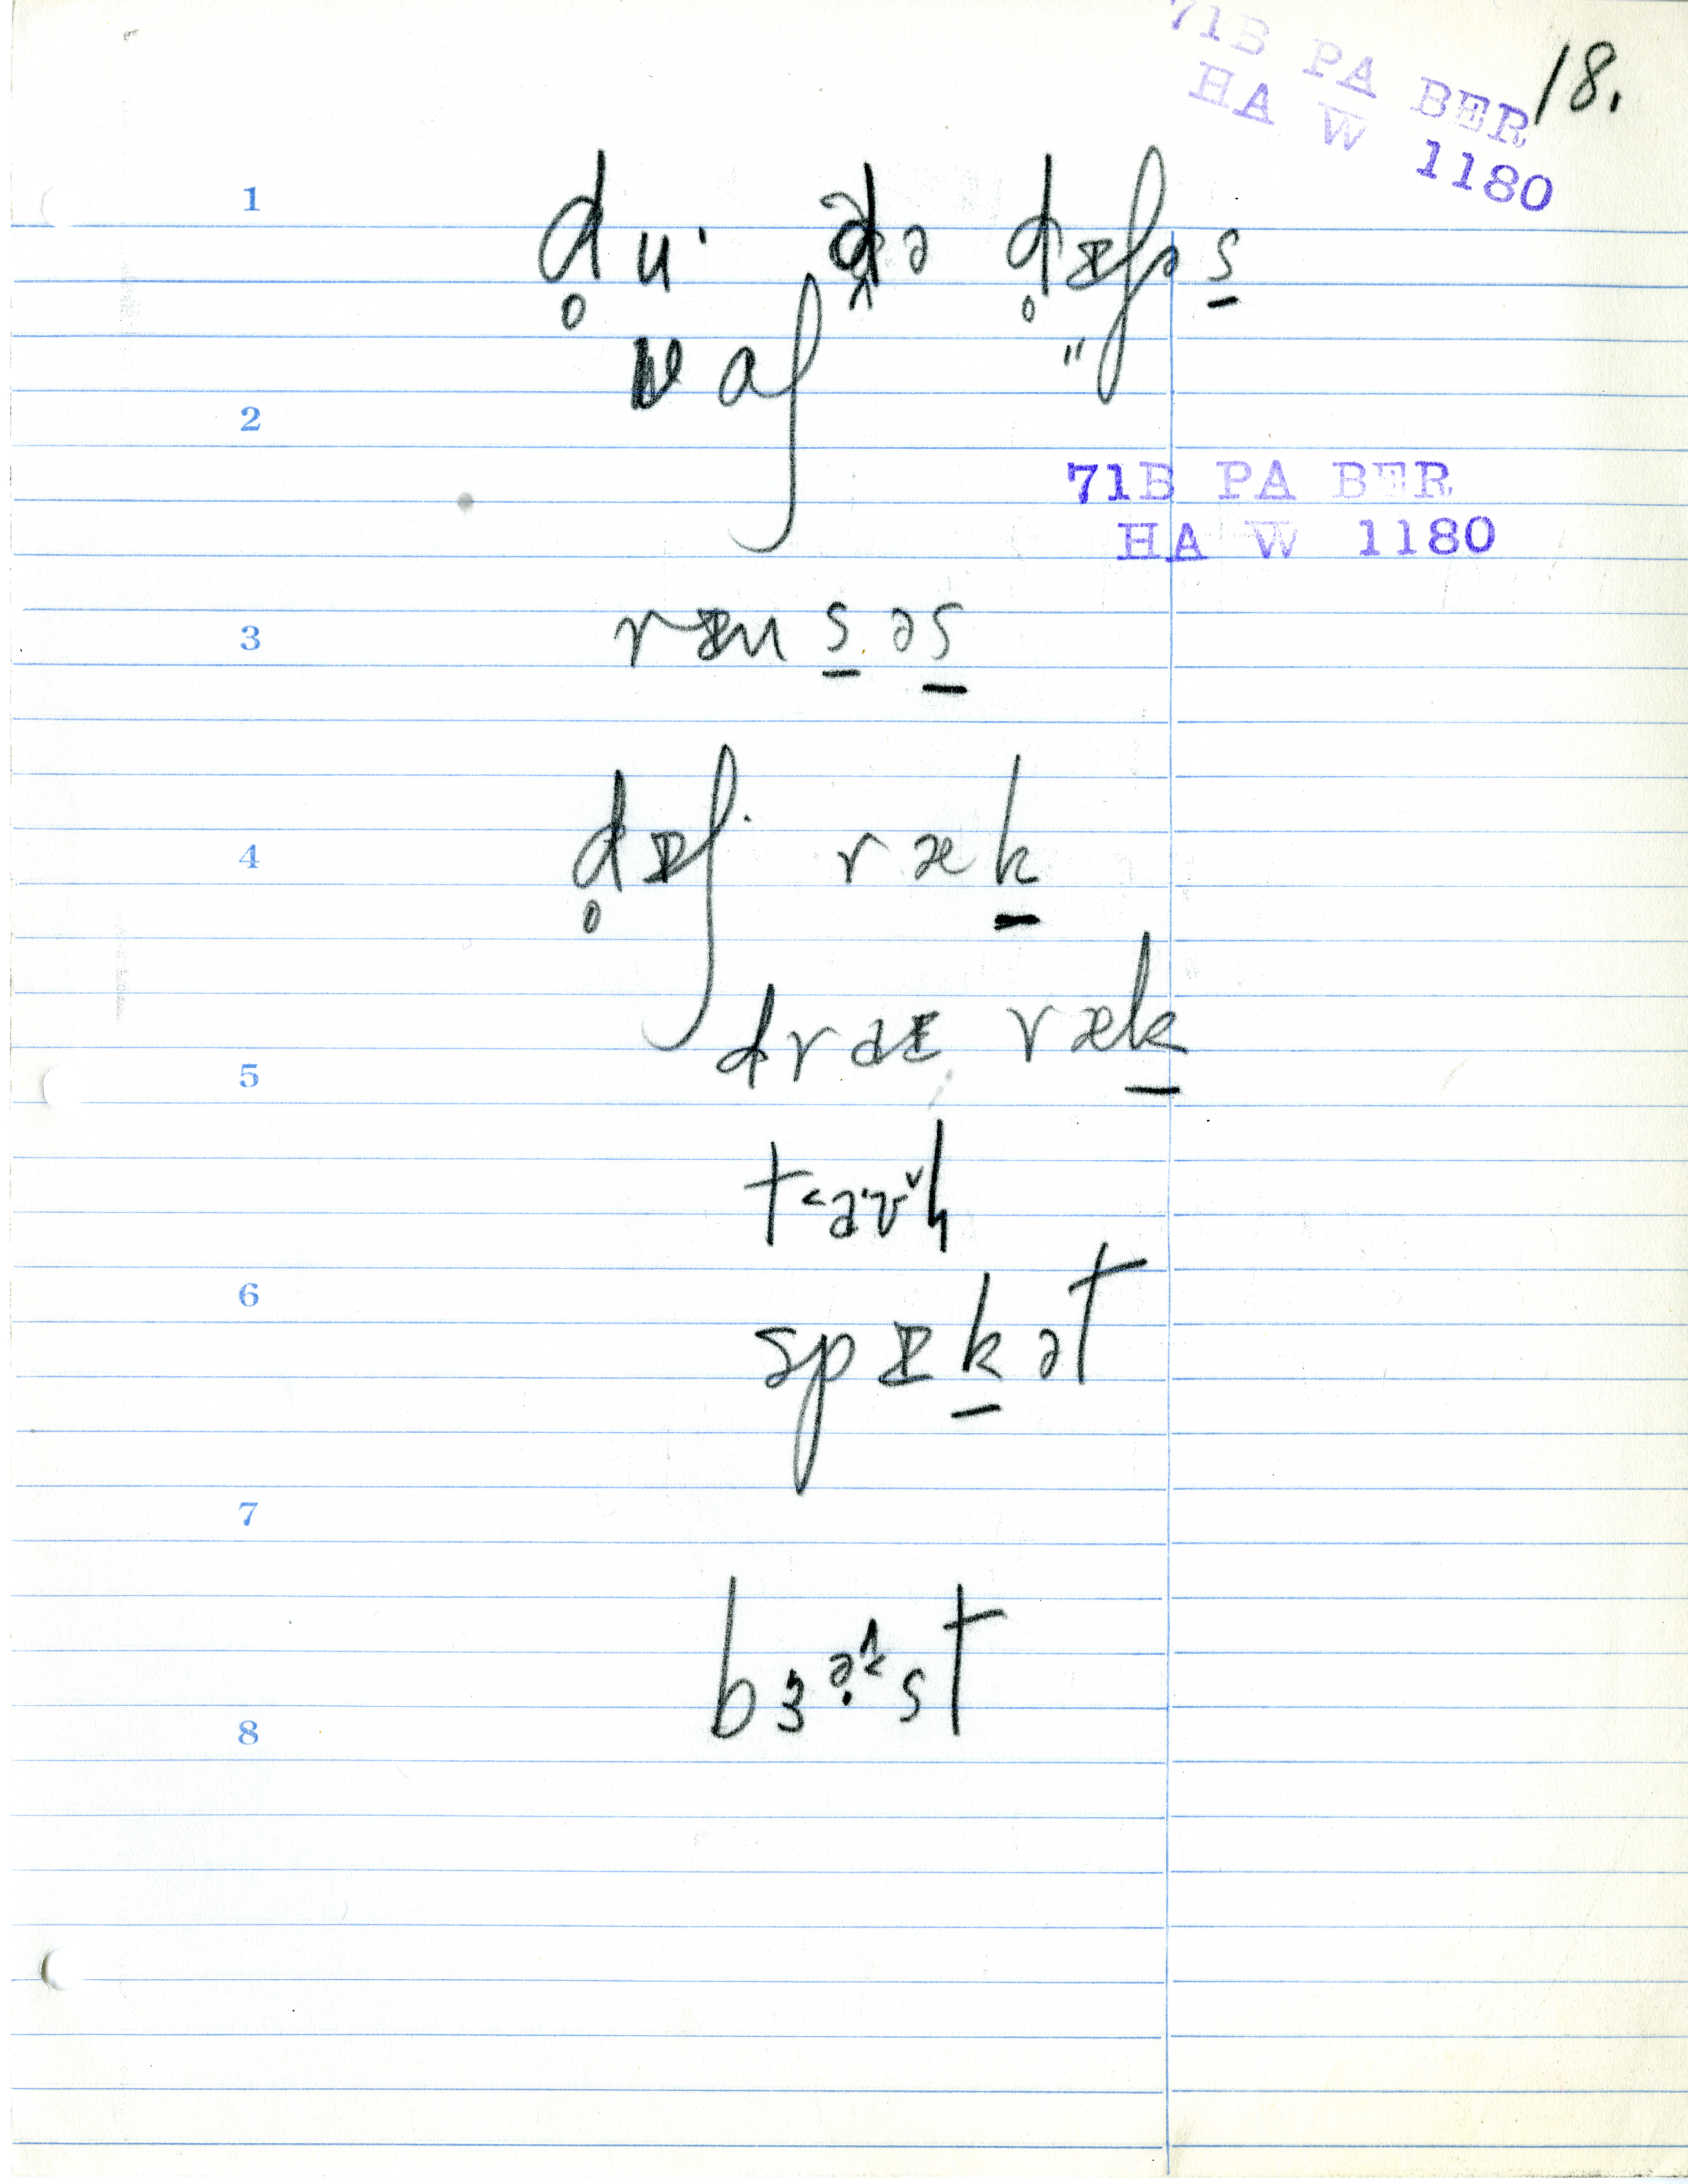 71B PA BER
HA W 1180
18.
1
d̥uˑ ðə d̥ɪʃəs̠
waʃ
2
71B PA BER
HA W 1180
3
rɪns̠əs̠
4
d̥ɪʃ ræk̠
draɪ ræk̠
5
6
spɪk̠ət
7
8